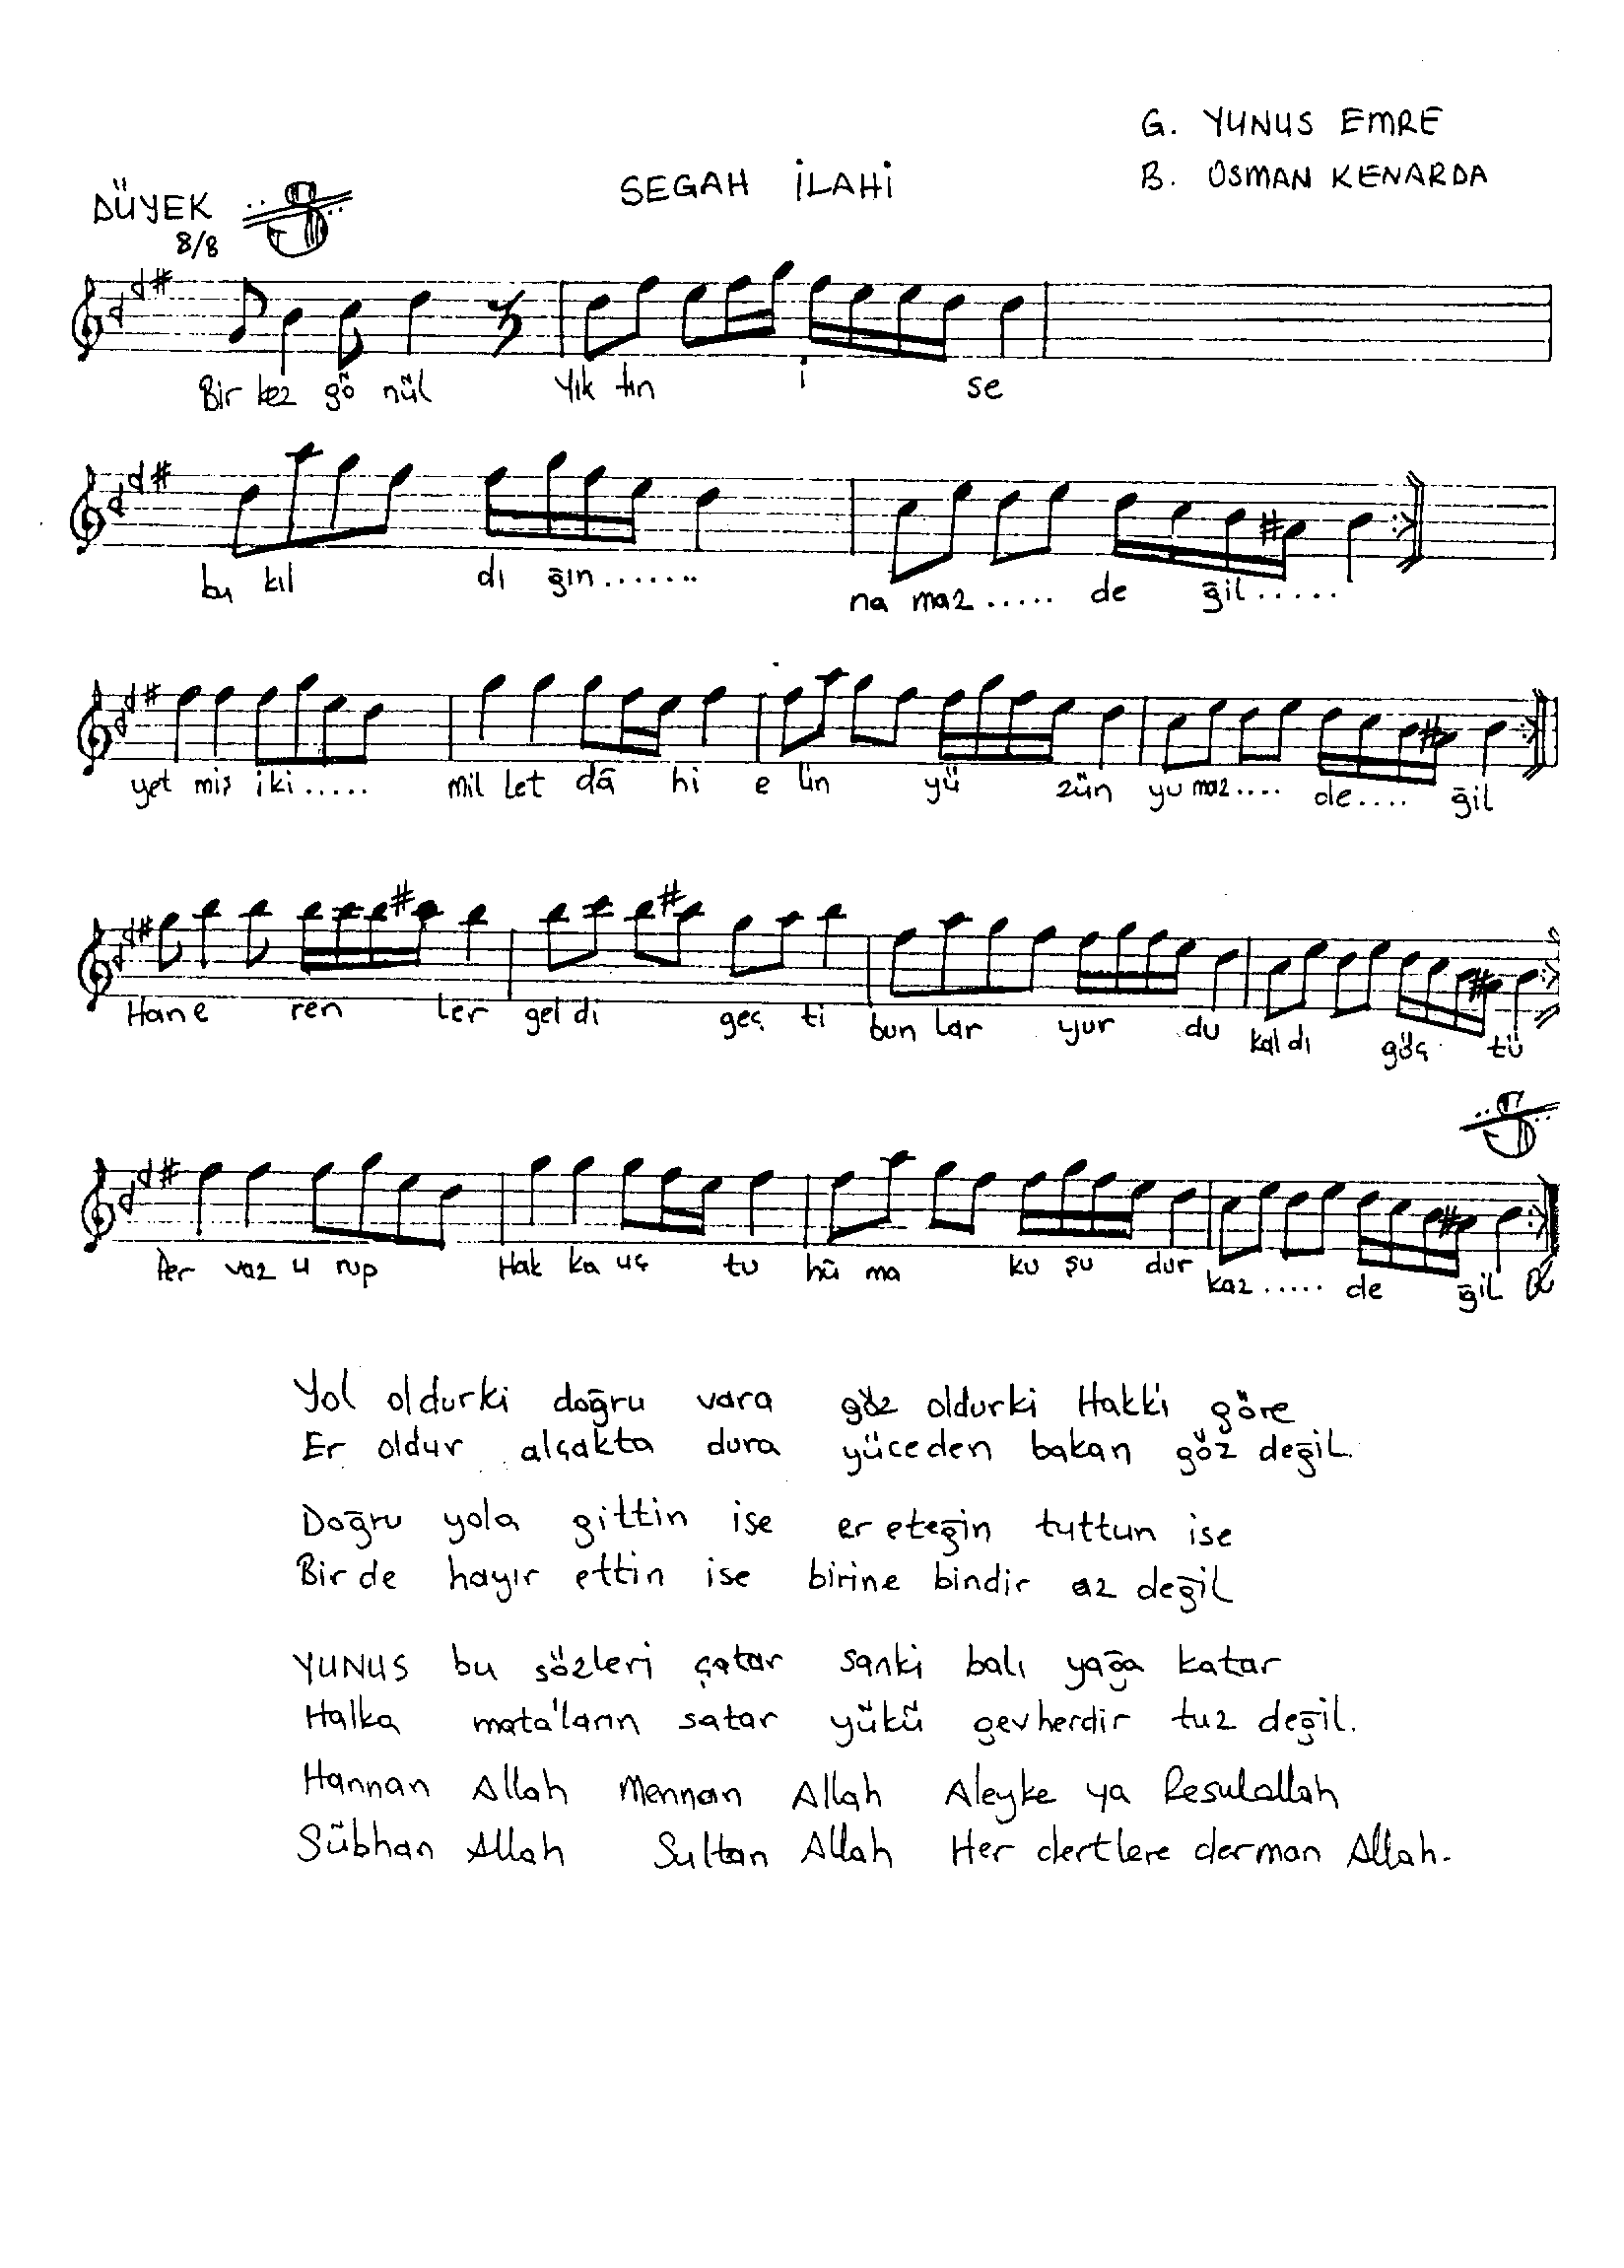 G. YUNUS EMRE
SEGAH İLAHİ
B. OSMAN KENARDA
DÜYEK
8/8
Bir kez gö nül Yık tın i se
bu kıl dı ğın....... na maz..... de ğil.....
yet miş iki..... mil let dâ hi e lin yü zün yu maz.... de.... ğil
Han e ren ler gel di geç ti bun lar yur du kal dı göç tü
Per vaz u rup Hak ka uç tu hü ma ku şu dur kaz..... de ğil
Yol oldurki doğru vara göz oldurki Hakk'i göre
Er oldur alçakta dura yüceden bakan göz değil.
Doğru yola gittin ise er eteğin tuttun ise
Bir de hayır ettin ise birine bindir az değil
YUNUS bu sözleri çatar sanki balı yağa katar
Halka mata'ların satar yükü gevherdir tuz değil.
Hannan Allah Mennan Allah Aleyke ya Resulallah
Sübhan Allah Sultan Allah Her dertlere derman Allah.